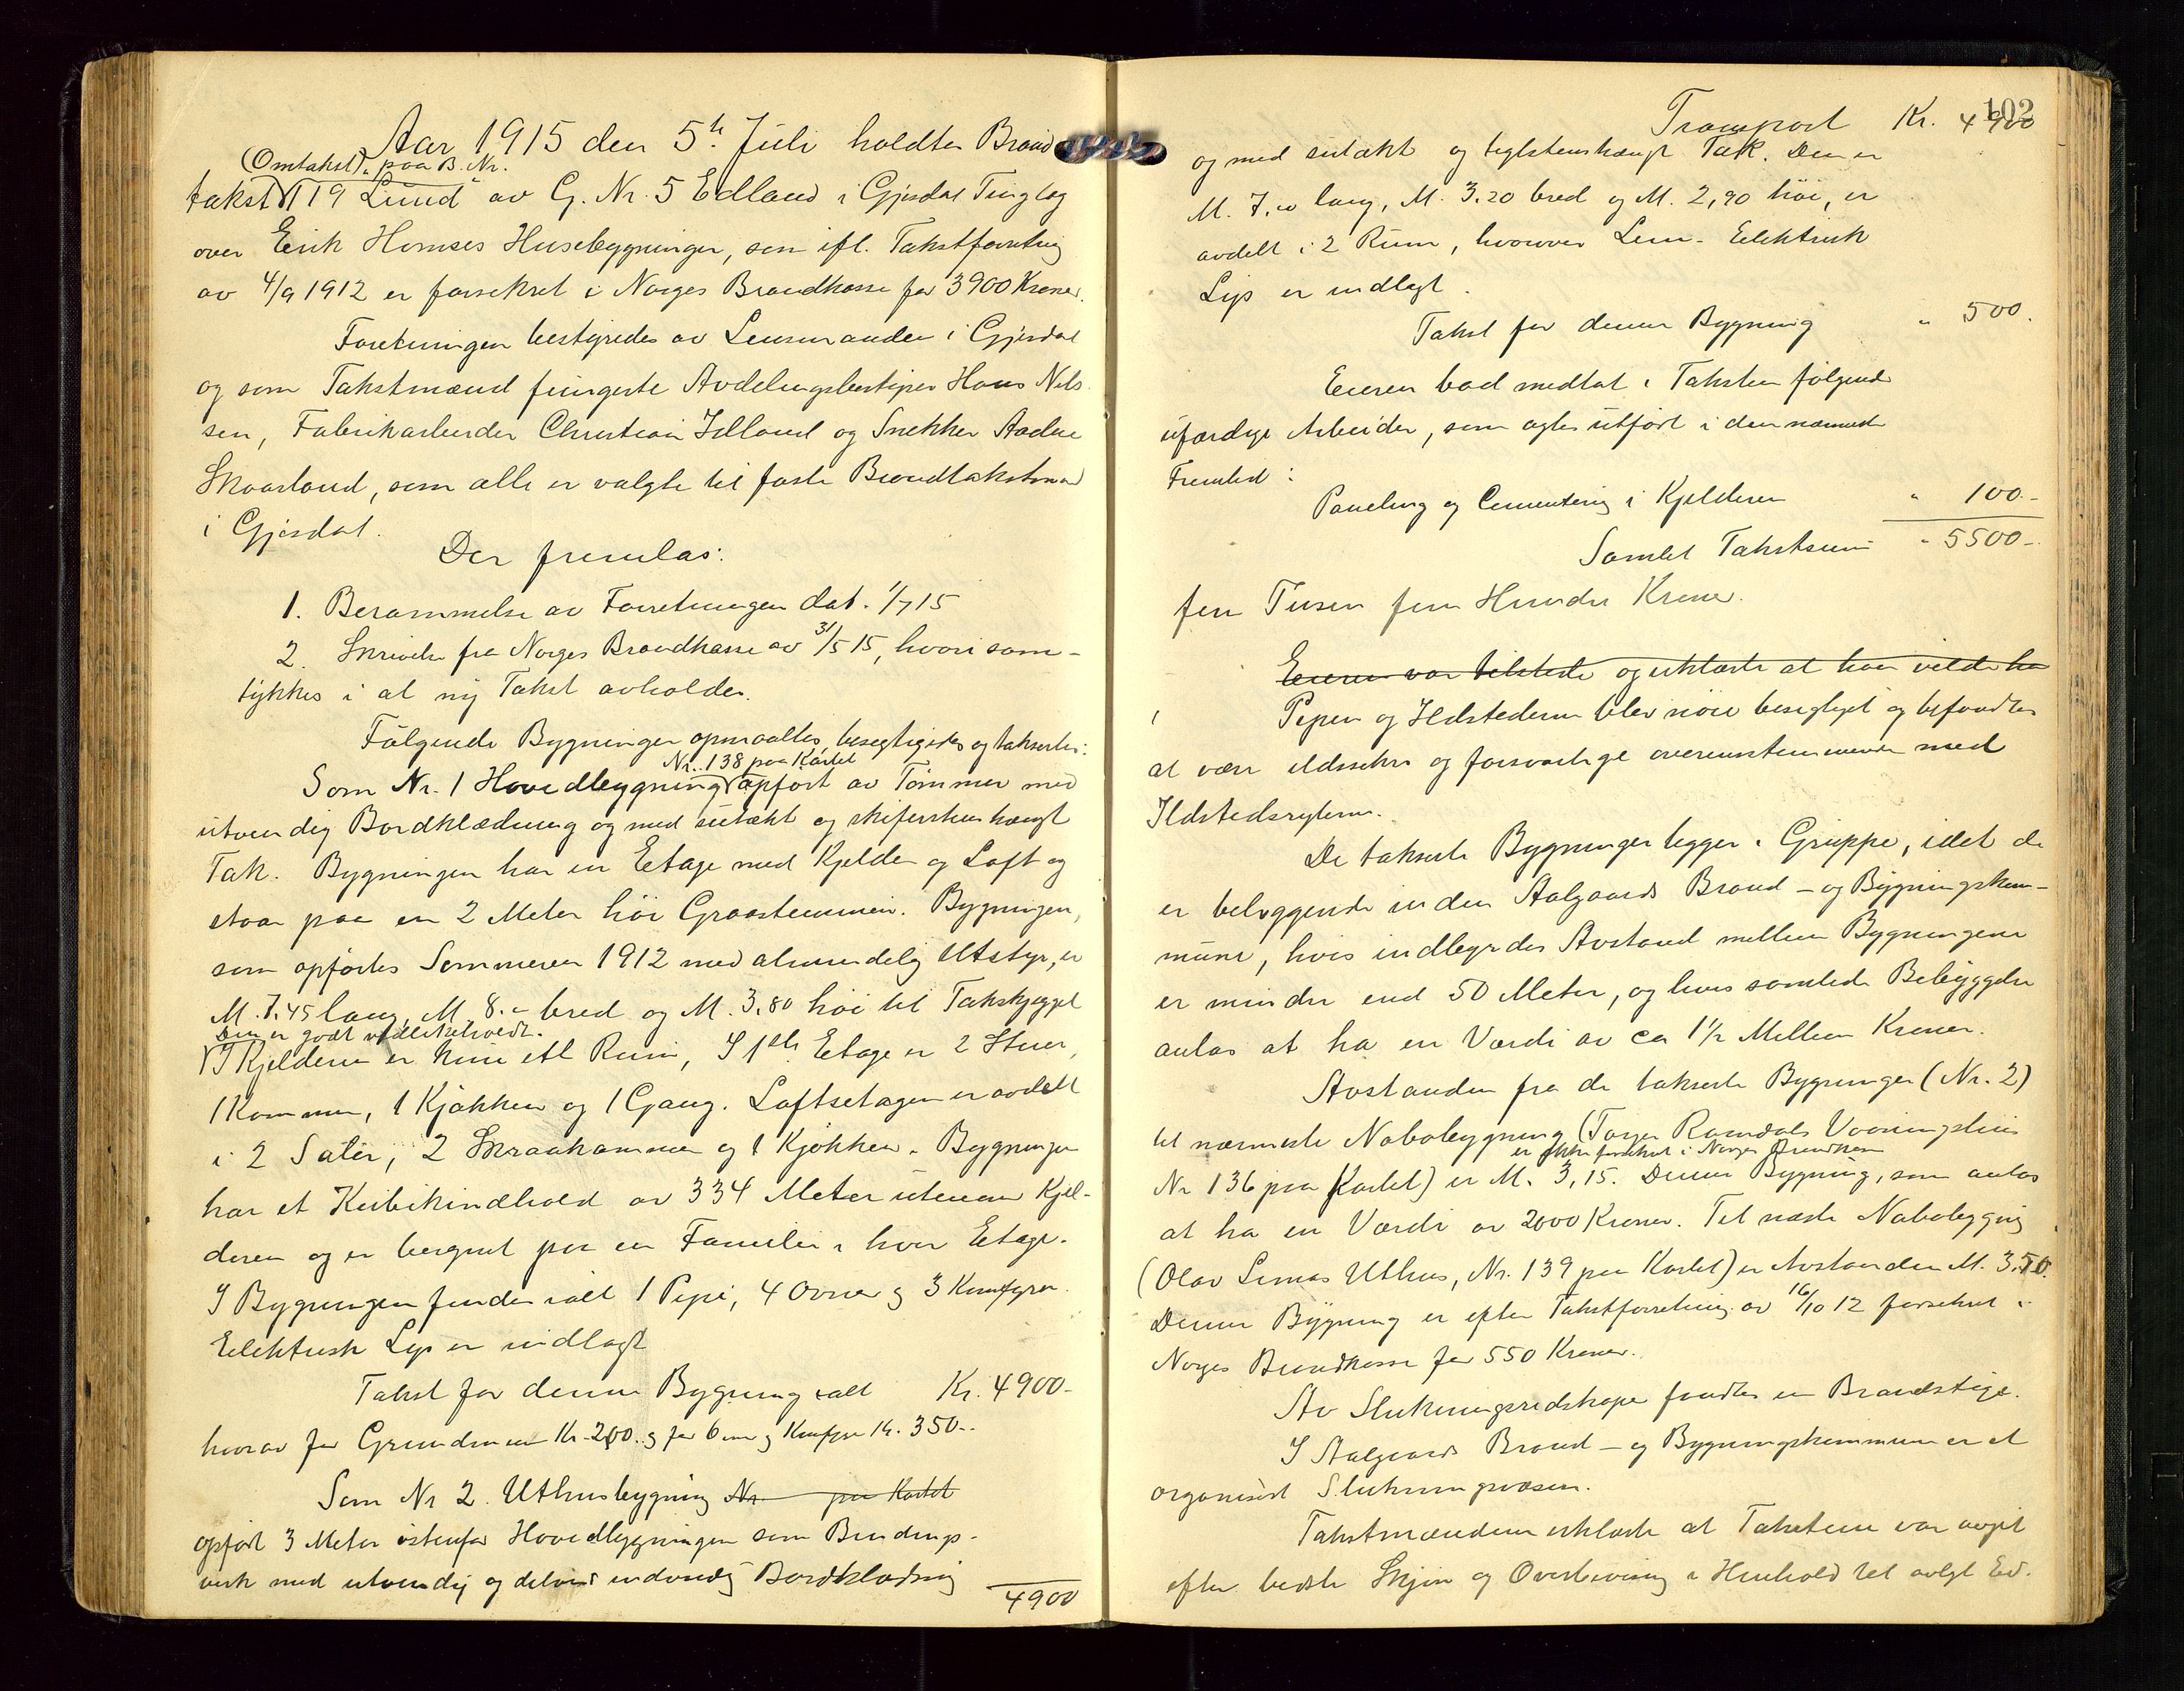 Aar 1915 den 5te Juli holdtes Brand
(Omtakst) paa B. Nr.
takst 119 "Lund" av G. Nr. 5 Edland i Gjesdal Tinglag
over Erik Homses Husebygninger, som ifl. Takstforretning
av 4/9 1912 er forsikret i Norges Brandkasse for 3900 Kroner.
Forretningen bestyredes av Lensmanden i Gjesdal
og som Takstmænd fungerte Avdelingsbestyrer Hans Nils
sen, Fabrikarbeider Christian Idland og Snekker Aadne
Skaarland, som alle er valgte til faste Brandtakstmænd
i Gjesdal.
Der fremlas:
1. Berammelse av Forretningen dat. 1/7 15
2. Skrivelse fra Norges Brandkasse av 31/5 15, hvori sam-
tykkes i at ny Takst avholdes.
Følgende Bygninger opmaaltes, besegtigedes og takserte:
Nr. 138 paa Kartet
Som Nr. 1 Hovedbygning opført av Tømmer med
utvendig Bordklædning og med sutækt og skiferstenhængt
Tak. Bygningen har en Etage med Kjelder og Loft og
staar paa en 2 Meter høi Graastensmur. Bygningen,
som opførtes Sommeren 1912 med almindelig Utstyr, er
M. 7.45 lang, M. 8.- bred og M. 3.80 høi til Takskjegget
Den er godt vedlikeholdt.
I Kjelderen er kun ett Rum, I 1ste Etage er 2 Stuer,
1 Kammer, 1 Kjøkken og 1 Gang. Loftsetagen er avdelt
i 2 Saler, 2 Skraakammer og 1 Kjøkken. Bygningen
har et Kubikindhold av 334 Meter utenom Kjel-
deren og er beregnet paa en Familie i hver Etage.
I Bygningen findes ialt 1 Pipe, 4 Ovner og 3 Komfyrer.
Elektrisk Lys er indlagt
Takst for denne Bygning ialt Kr. 4900-
hvorav for Grundmuren Kr. 200. og for Ovne og Komfyre Kr. 350..
Som Nr 2. Uthusbygning Nr paa Kartet
opført 3 Meter østenfor Hovedbygningen som Bindings-
verk med utvendig og delvis indvendig Bordklædning
4900
102
Transport Kr. 4900
og med sutækt og teglstenshængt Tak. Den er
M. 7.10 lang, M. 3.20 bred og M. 2,90 høi, er
avdelt i 2 Rum, hvorover Lem. Elektrisk
Lys er indlagt.
Takst for denne Bygning " 500.
Eieren bad medtat i Taksten følgende
ufærdige Arbeider, som agtes utført i den nærmeste
Fremtid:
Paneling og Cementering i Kjelderen " 100.-
Samlet Takstsum " 5500-
fem Tusen fem Hundre Kroner.
Eieren var tilstede og erklærte at han vilde ha
Pipen og Ildstederne blev nøie besegtiget og befandtes
at være ildssikre og forsvarlige overensstemmende med
Ildstedsreglerne.
De takserte Bygninger ligger i Gruppe, idet de
er beliggende inden Aalgaards Brand- og Bygningskom-
mune, hvis indbyrdes Avstand mellem Bygningene
er mindre end 50 Meter, og hvis samlede Bebyggelse
antas at ha en Værdi av ca 1½ Million Kroner.
Avstanden fra de takserte Bygninger (Nr. 2)
til nærmeste Nabobygning (Torger Ramdals Vaaningshus
er ikke forsikret i Norges Brandkasse
Nr 136 paa Kartet) er M. 3,15. Denne Bygning, som antas
at ha en Værdi av 2000 Kroner. Til næste Nabobygning
(Olav Limas Uthus, Nr. 139 paa Kartet) er Avstanden M. 3.50.
Denne Bygning er efter Takstforretning av 16/10 12 forsikret i
Norges Brandkasse for 550 Kroner.
Av Slukningsredskape fandtes en Brandstige.
I Aalgaards Brand- og Bygningskommune er et
organisert Slukningsvæsen.
Takstmændene erklærte at Takstene var avgit
efter bedste Skjøn og Overbevisning i Henhold til avlagt Ed.